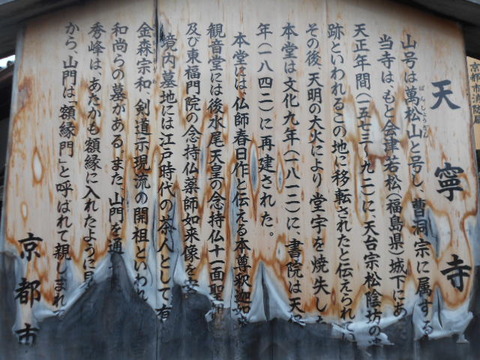 天寧寺
山号は萬松山と号し、曹洞宗に属する
ばんしょうざん
当寺はもと会津若松（福島県）城下にあ
天正年間（一五七三〜九二）に、天台宗松陰坊の
跡といわれるこの地に移転されたと伝えられてい
その後、天明の大火により堂宇を焼失し
本堂は文化九年（一八一二）に、書院は天
年（一八四二）に再建された。
本堂には仏師春日作と伝える本尊釈迦如
観音堂には後水尾天皇の念持仏十一面聖
及び東福門院の念持仏薬師如来像を安
境内墓地には江戸時代の茶人として有
金森宗和、剣道示現流の開祖といわれ
和尚らの墓がある。また、山門を通
秀峰は、あたかも額縁に入れたように見
から、山門は「額縁門」と呼ばれて親しまれ
京都市